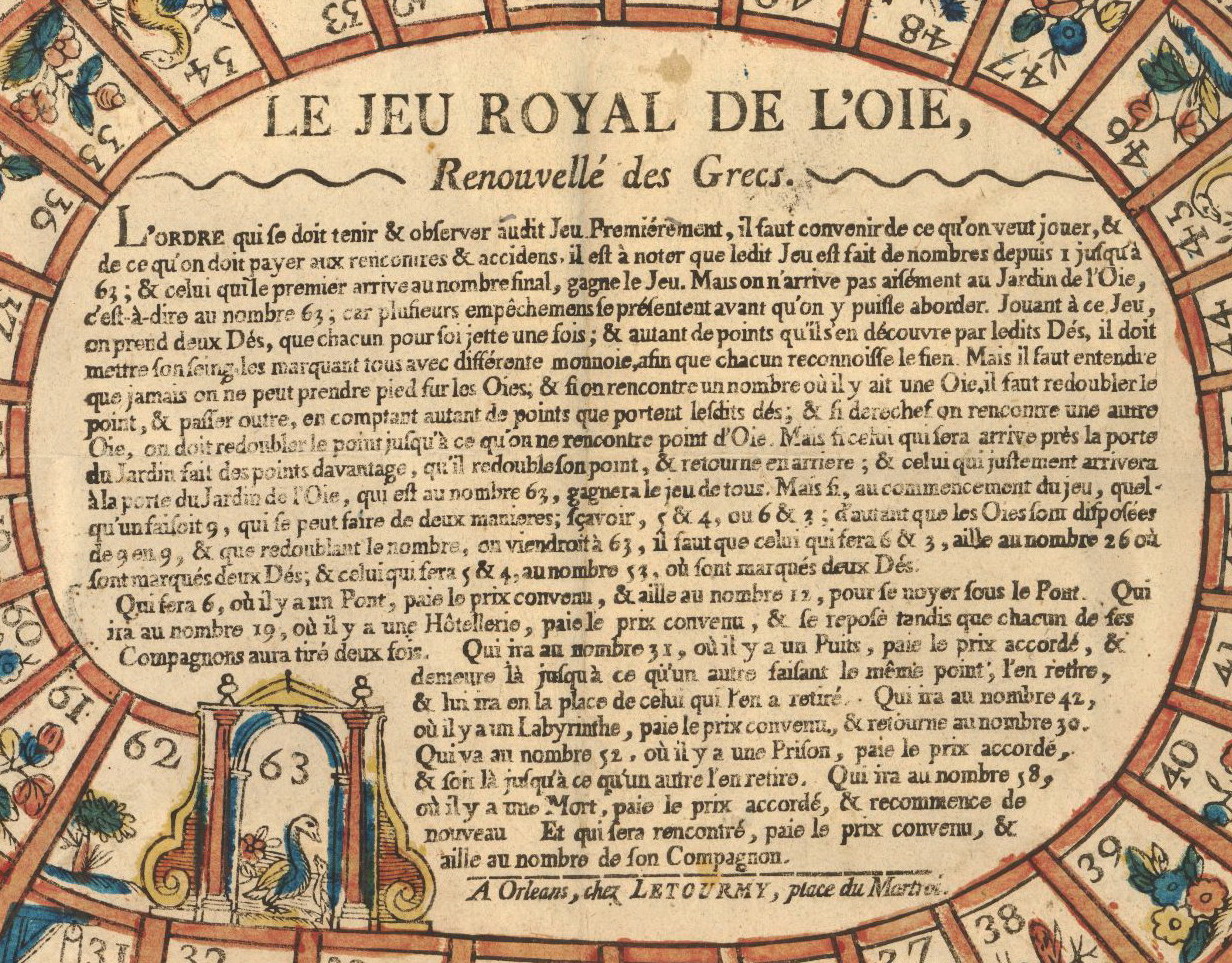 LE JEU ROYAL DE L'OIE,
Renouvellé des Grecs.
L'ORDRE qui ſe doit tenir & obſerver audit Jeu Premiérement, il faut convenir de ce qu'on veut jouer, &
de ce qu'on doit payer aux rencontres & accidens, il eſt à noter que ledit Jeu eſt fait de nombres depuis 1 juſqu'à
63; & celui qui le premier arrive au nombre final, gagne le Jeu. Mais on n'arrive pas aiſément au Jardin de l'Oie,
c'eſt-à-dire au nombre 63; car pluſieurs empêchemens ſe préſentent avant qu'on y puiſſe aborder. Jouant à ce Jeu,
on prend deux Dés, que chacun pour ſoi jette une fois; & autant de points qu'il s'en découvre par leſdits Dés, il doit
mettre ſon ſeing, les marquant tous avec différente monnoie, afin que chacun reconnoiſſe le ſien. Mais il faut entendre
que jamais on ne peut prendre pied ſur les Oies; & ſi on rencontre un nombre où il y ait une Oie, il faut redoubler le
point, & paſſer outre, en comptant autant de points que portent leſdits dés; & ſi derechef on rencontre une autre
Oie, on doit redoubler le point juſqu'à ce qu'on ne rencontre point d'Oie. Mais ſi celui qui ſera arrive près la porte
du Jardin fait des points davantage, qu'il redouble ſon point, & retourne en arriere; & celui qui juſtement arrivera
à la porte du Jardin de l'Oie, qui eſt au nombre 63, gagnera le jeu de tous. Mais ſi, au commencement du jeu, quel-
qu'un faiſoit 9, qui ſe peut faire de deux manieres; ſçavoir, 5 & 4, ou 6 & 3; d'autant que les Oies ſont diſpoſées
de 9 en 9, & que redoublant le nombre, on viendroit à 63, il faut que celui qui fera 6 & 3, aille au nombre 26 où
ſont marqués deux Dés; & celui qui fera 5 & 4, au nombre 53, où ſont marqués deux Dés.
Qui fera 6, où il y a un Pont, paie le prix convenu, & aille au nombre 12, pour ſe noyer ſous le Pont. Qui
ira au nombre 19, où il y a une Hôtellerie, paie le prix convenu, & ſe repoſe tandis que chacun de ſes
Compagnons aura tiré deux fois. Qui ira au nombre 31, où il y a un Puits, paie le prix accordé, &
demeure là juſqu'à ce qu'un autre faiſant le même point, l'en retire,
& lui ira en la place de celui qui l'en a retiré. Qui ira au nombre 42,
où il y a un Labyrinthe, paie le prix convenu, & retourne au nombre 30.
Qui va au nombre 52, où il y a une Priſon, paie le prix accordé,
& ſoit là juſqu'à ce qu'un autre l'en retire. Qui ira au nombre 58,
où il y a une Mort, paie le prix accordé, & recommence de
nouveau Et qui ſera rencontré, paie le prix convenu, &
aille au nombre de ſon Compagnon.
A Orleans, chez LETOURMY, place du Martroi.
31
32
33
34
35
36
37
37
38
39
40
41
44
45
46
47
48
60
61
62
63